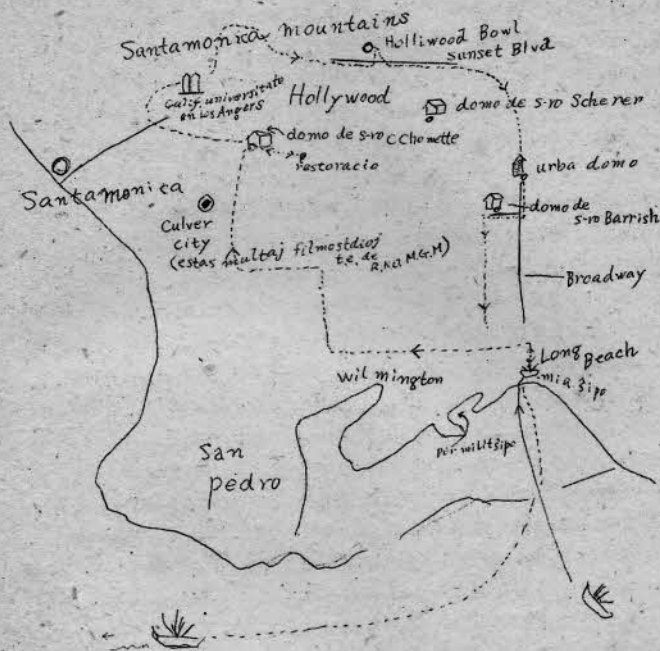 Santamonica mountains
Holliwood Bowl
Sunset Blvd
Calif. universitato
en Los Angers
Hollywood
domo de s-ro Scherer
domo de s-ro CChomette
restoracio
urba domo
Santamonica
domo de
s-ro Barrish
Culver
city
(estas multaj filmostdioj
t.e. de
R.K.O. M.G.M)
Broadway
Long Beach
mia ŝipo
Wilmington
por militŝipo
San
pedro